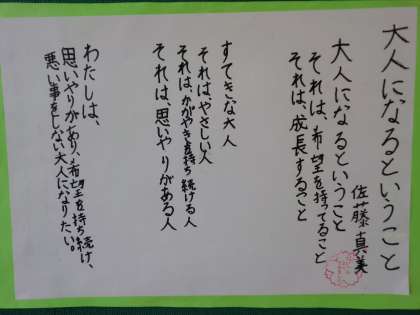 大人になるということ
佐藤真美
大人になるということ
それは、希望を持てること
それは、成長すること
すてきな大人
それは、やさしい人
それは、かがやきを持ち続ける人
それは、思いやりがある人
わたしは、
思いやりがあり、希望を持ち続け、
悪い事をしない大人になりたい。